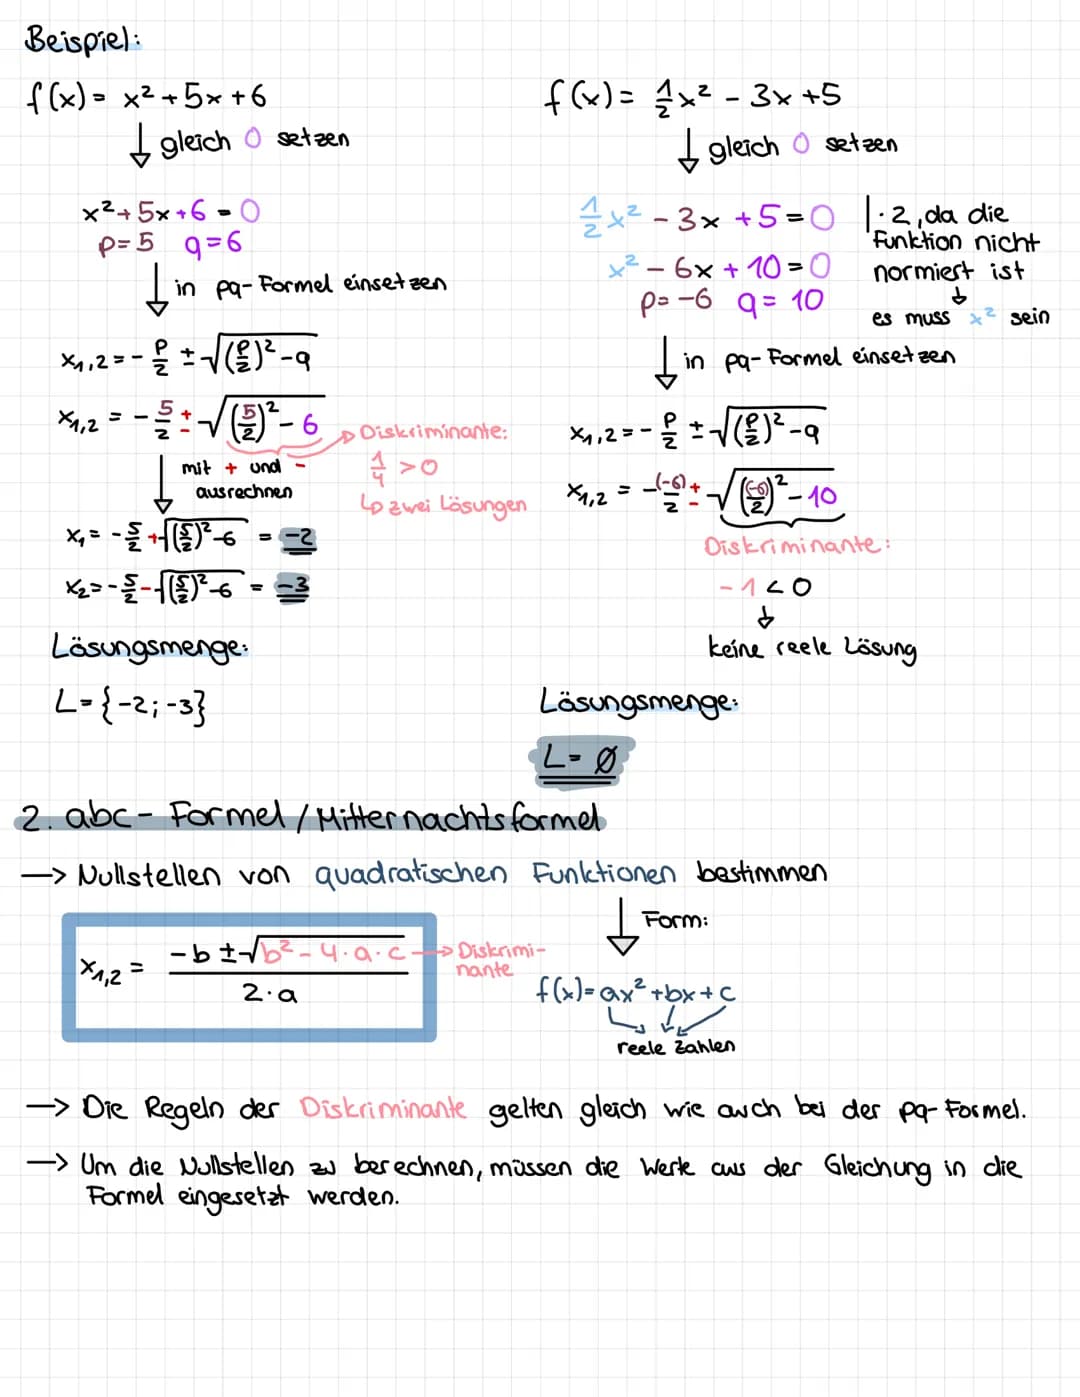 Beispiel:
f(x) = x² + 5x + 6
↓ gleich 0 setzen
x² + 5x + 6 = 0
p = 5 q = 6
↓ in pq-Formel einsetzen
x₁,₂ = - p/2 ± √((p/2)² - q)
x₁,₂ = - 5/2 ± √((5/2)² - 6)
→ Diskriminante:
1/4 > 0
↳ zwei Lösungen
↓ mit + und -
ausrechnen
x₁ = - 5/2 + √((5/2)² - 6) = -2
x₂ = - 5/2 - √((5/2)² - 6) = -3
Lösungsmenge:
L = {-2; -3}
f(x) = 1/2 x² - 3x + 5
↓ gleich 0 setzen
1/2 x² - 3x + 5 = 0 | · 2, da die
Funktion nicht
normiert ist
↓
es muss x² sein
x² - 6x + 10 = 0
p = -6 q = 10
↓ in pq-Formel einsetzen
x₁,₂ = - p/2 ± √((p/2)² - q)
x₁,₂ = - (-6)/2 ± √((-6)/2)² - 10
Diskriminante:
-1 < 0
↓
keine reele Lösung
Lösungsmenge:
L = ∅
2. abc - Formel / Mitternachtsformel
→ Nullstellen von quadratischen Funktionen bestimmen
↓ Form:
x₁,₂ = (-b ± √(b² - 4·a·c)) / (2·a)
→ Diskrimi-
nante
f(x) = ax² + bx + c
reele Zahlen
→ Die Regeln der Diskriminante gelten gleich wie auch bei der pq-Formel.
→ Um die Nullstellen zu berechnen, müssen die Werte aus der Gleichung in die
Formel eingesetzt werden.